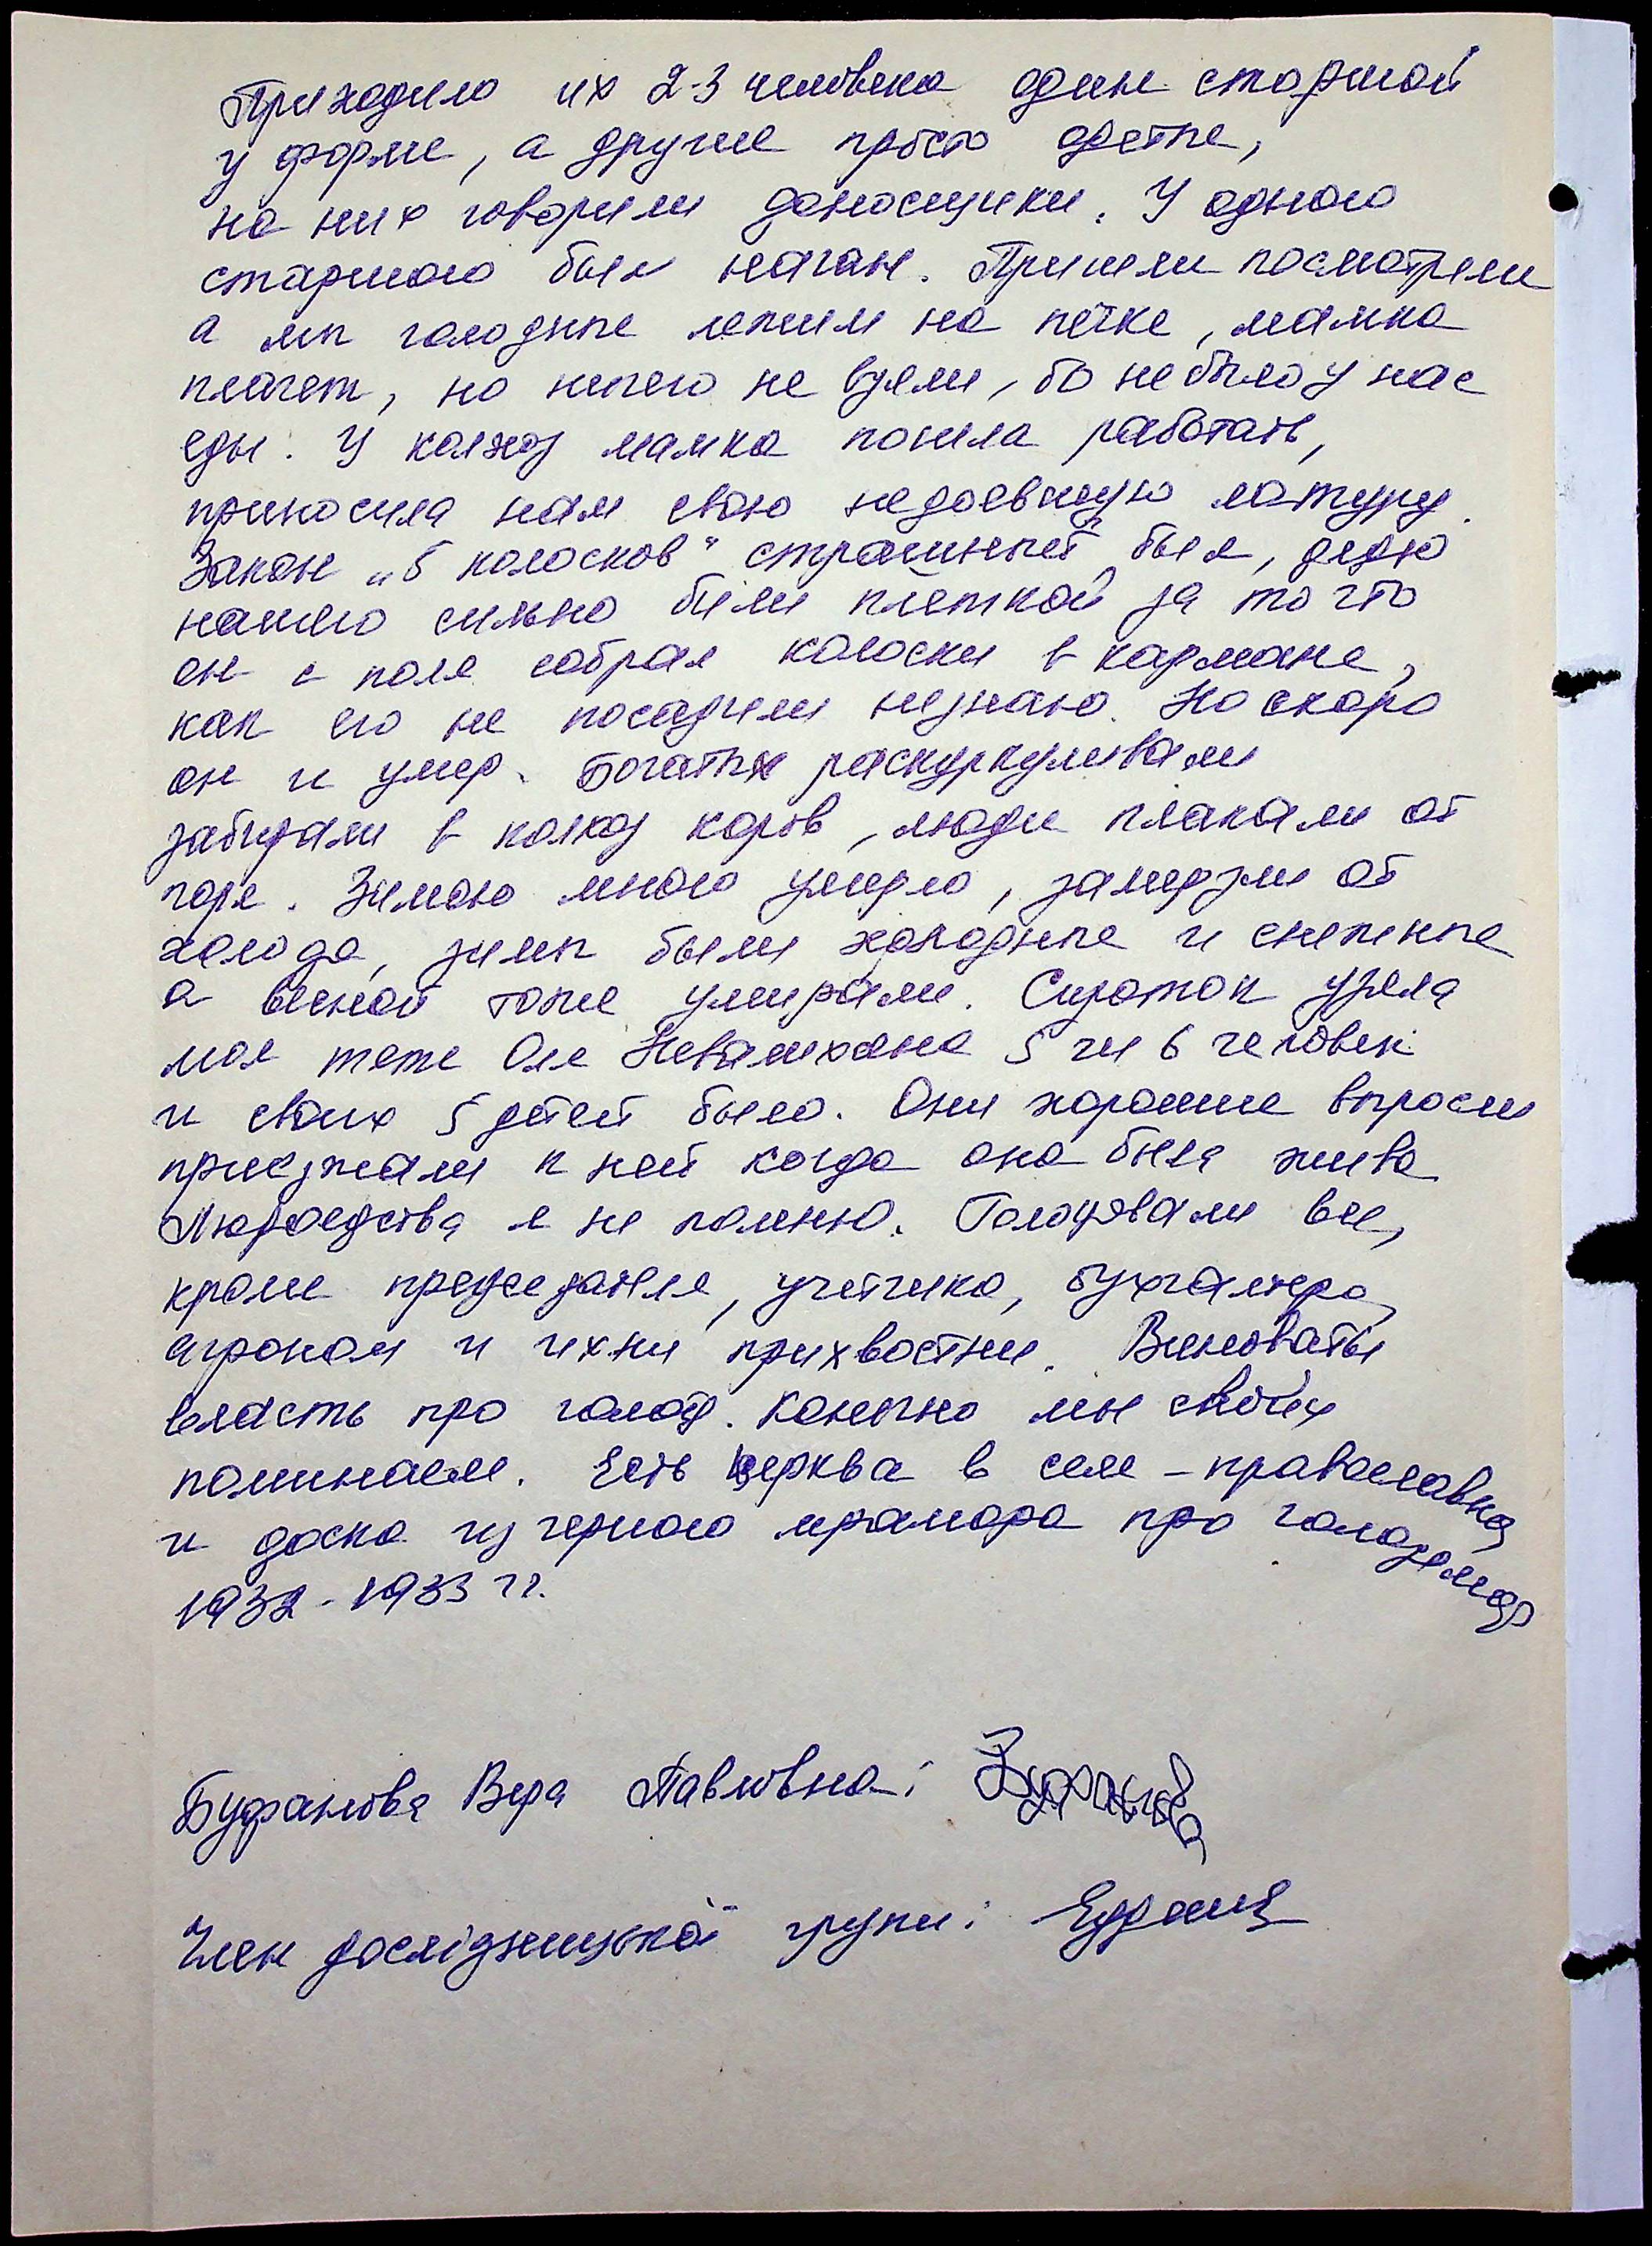 Приходило их 2-3 человека один старшой
у форме, а другие просто одетые,
на них говорили доносщики. У одного
старшого был наган. Пришли посмотрели
а мы голодные лежим на печке, мамка
плачет, но ничего не взяли, бо не было у нас
еды. У колхоз мамка пошла работать,
приносила нам свою недоевшую затируху.
Закон „5 колосков" страшный был, дядю
нашего сильно били плеткой за то что
он с поля собрал колоски в кармане,
как его не посадили незнаю. Но скоро
он и умер. Богатых раскуркуливали
забирали в колхоз коров, люди плакали от
горя. Зимою много умерло, замерзли от
холода, зимы были холодные и снежные
а весной тоже умирали. Сироток узяла
моя тетя Оля 5 чи 6 человек
и своих 5 детей было. Они хорошие выросли
приезжали к ней когда она была жива
Людоедства я не помню. Голодовали все,
кроме председателя, учетчика, бухгалтера,
агроном и ихни прихвостни. Виноваты
власть про голод. Конечно мы своих
поминаем. Есть церква в селе - православная
и доска из черного мрамора про голодомор
1932-1933 гг.
Буданова Вера Павловна:
Член дослідницької групи: